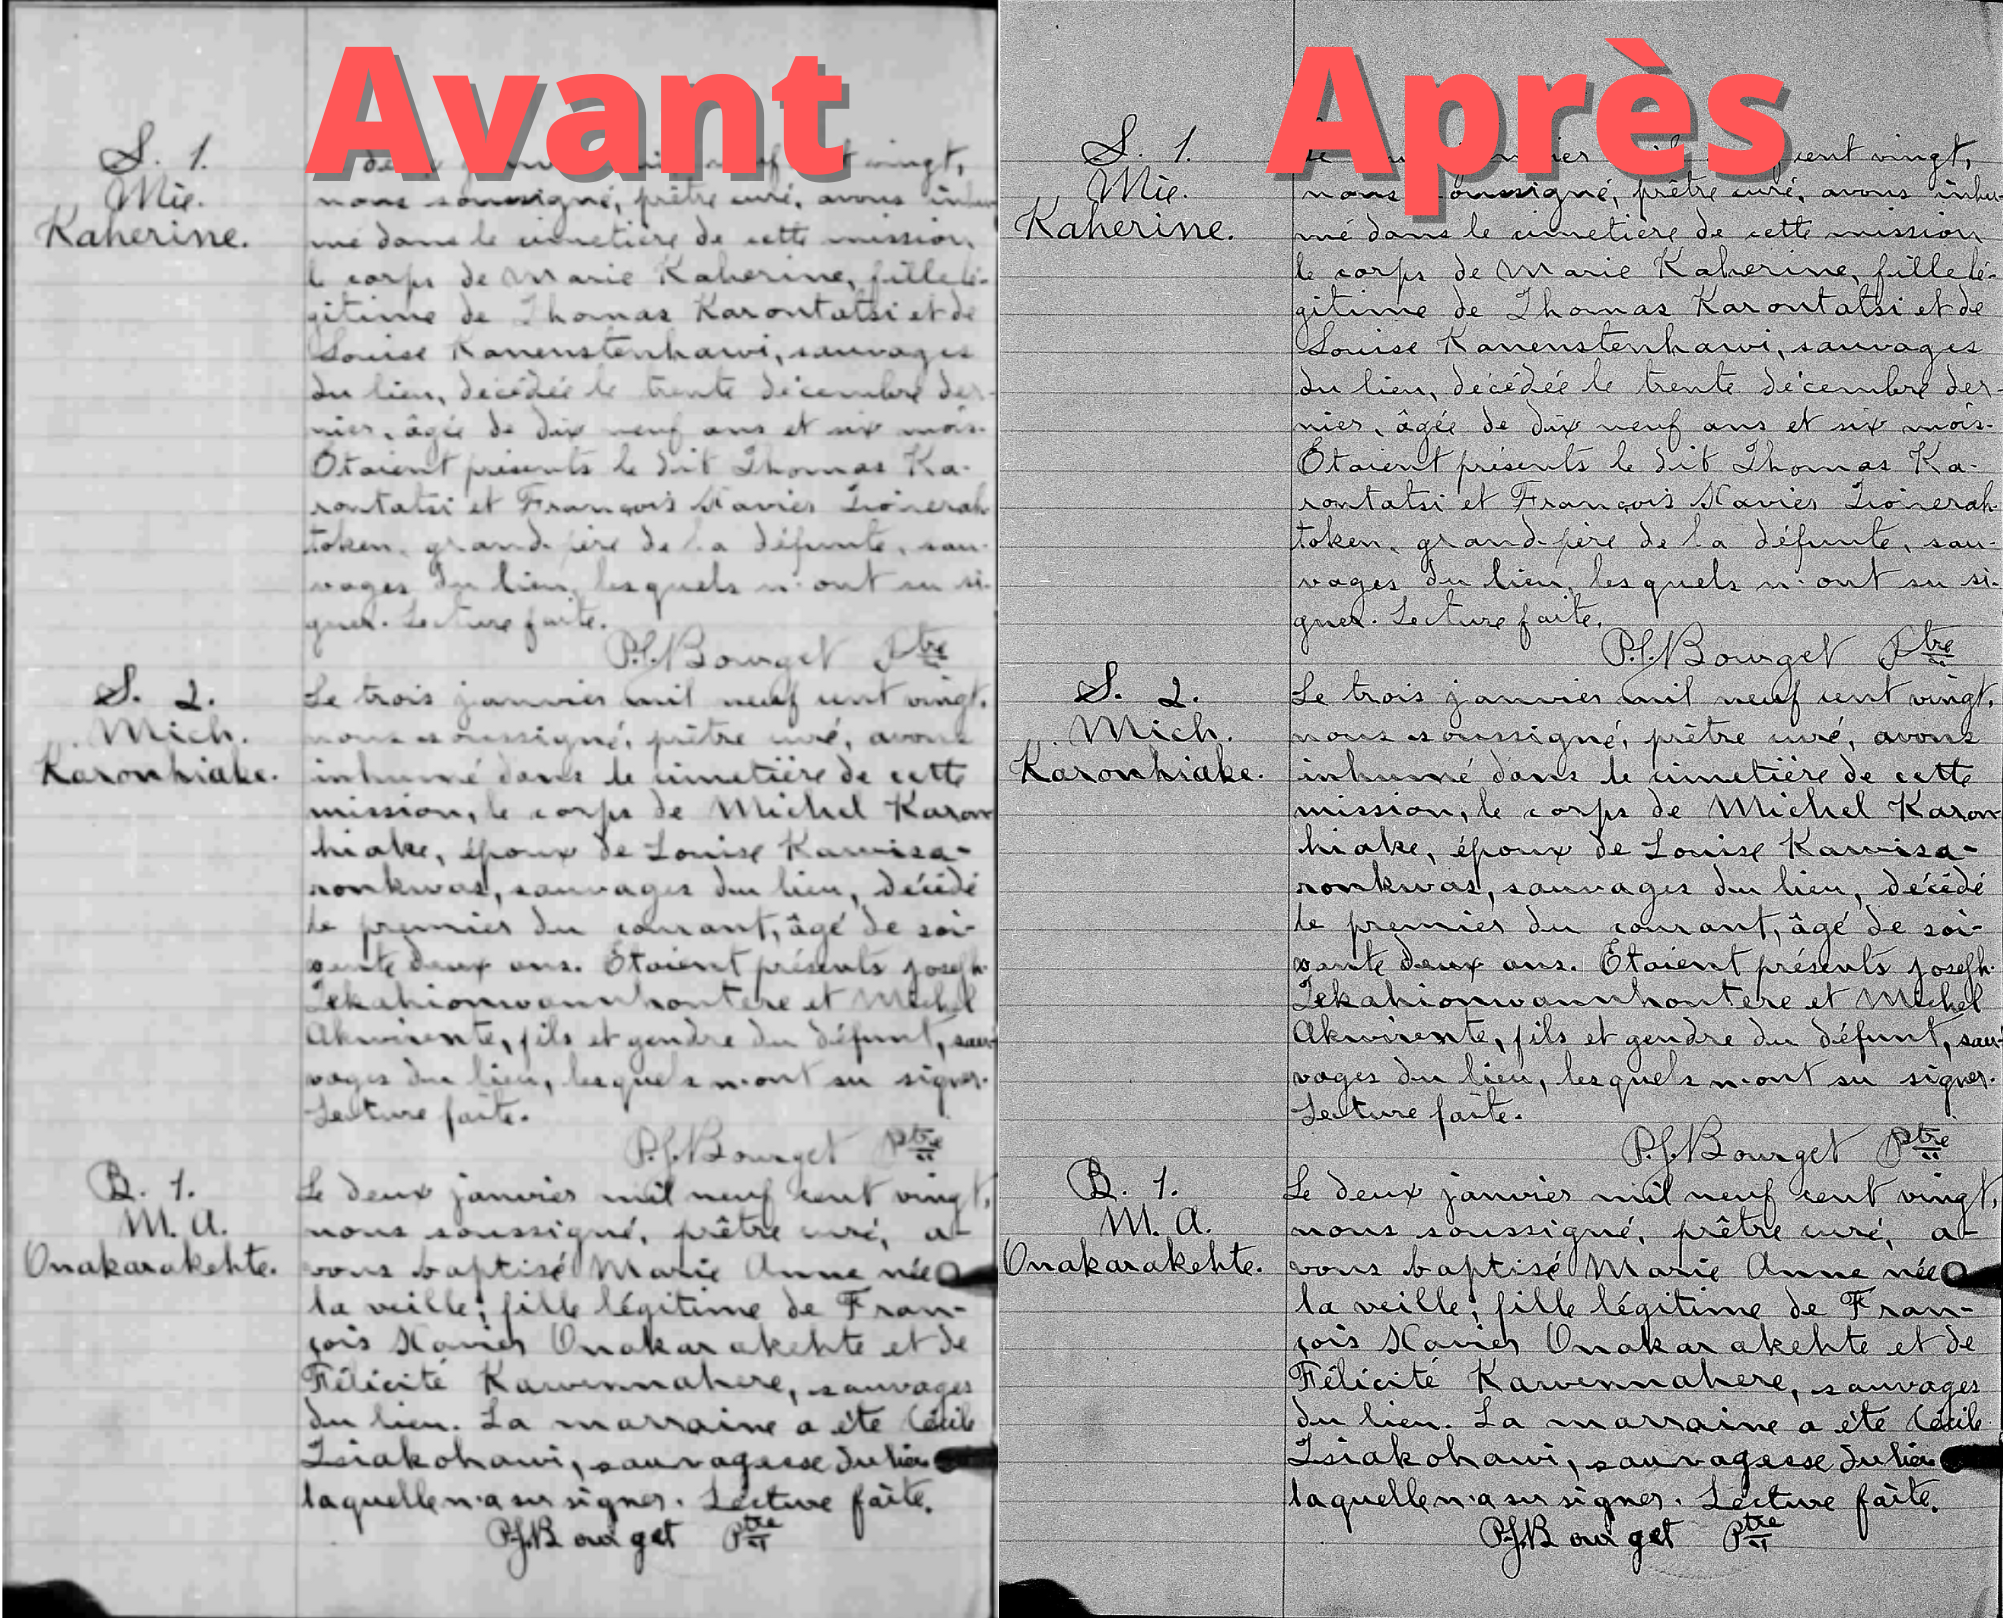 Avant
S. 1.
Mie.
Kaherine.
vingt,
nous soussigné, prêtre curé, avons inhu-
mé dans le cimetière de cette mission
le corps de Marie Kaherine, fille lé-
gitime de Thomas Karontatsi et de
Louise Kanenstenhawi, sauvages
du lieu, décédée le trente décembre der-
nier, âgée de dix neuf ans et six mois.
Etaient présents le dit Thomas Ka-
rontatsi et François Xavier
token, grand-père de la défunte, sau-
vages du lieu, lesquels n'ont su si-
gner. Lecture faite.
P.J. Bourget Ptre
S. 2.
Mich.
Karonhiake.
Le trois janvier mil neuf cent vingt,
nous soussigné, prêtre curé, avons
inhumé dans le cimetière de cette
mission, le corps de Michel Karon
hiake, époux de Louise Kawisa-
ronkwas, sauvages du lieu, décédé
le premier du courant, âgé de soi-
xante deux ans. Etaient présents Joseph
Tekahionwannhontere et Michel
Akwirente, fils et gendre du défunt, sau-
vages du lieu, lesquels n'ont su signer.
Lecture faite.
P.J. Bourget Ptre
B. 1.
M. A.
Onakarakehte.
Le deux janvier mil neuf cent vingt,
nous soussigné, prêtre curé, a-
vons baptisé Marie Anne née
la veille, fille légitime de Fran-
çois Xavier Onakarakehte et de
Félicité Kawennahere, sauvages
du lieu. La marraine a été Cécile
Tsiakohawi, sauvagesse du lieu
laquelle n'a su signer. Lecture faite.
P.J.Bourget Ptre
Après
S. 1.
Mie.
Kaherine.
cent vingt,
nous soussigné, prêtre curé, avons inhu-
mé dans le cimetière de cette mission
le corps de Marie Kaherine, fille lé-
gitime de Thomas Karontatsi et de
Louise Kanenstenhawi, sauvages
du lieu, décédée le trente décembre der-
nier, âgée de dix neuf ans et six mois.
Etaient présents le dit Thomas Ka-
rontatsi et François Xavier
token, grand-père de la défunte, sau-
vages du lieu, lesquels n'ont su si-
gner. Lecture faite.
P.J. Bourget Ptre
S. 2.
Mich.
Karonhiake.
Le trois janvier mil neuf cent vingt,
nous soussigné, prêtre curé, avons
inhumé dans le cimetière de cette
mission, le corps de Michel Karon
hiake, époux de Louise Kawisa-
ronkwas, sauvages du lieu, décédé
le premier du courant, âgé de soi-
xante deux ans. Etaient présents Joseph
Tekahionwannhontere et Michel
Akwirente, fils et gendre du défunt, sau-
vages du lieu, lesquels n'ont su signer.
Lecture faite.
P.J. Bourget Ptre
B. 1.
M. A.
Onakarakehte.
Le deux janvier mil neuf cent vingt,
nous soussigné, prêtre curé, a-
vons baptisé Marie Anne née
la veille, fille légitime de Fran-
çois Xavier Onakarakehte et de
Félicité Kawennahere, sauvages
du lieu. La marraine a été Cécile
Tsiakohawi, sauvagesse du lieu
laquelle n'a su signer. Lecture faite.
P.J.Bourget Ptre